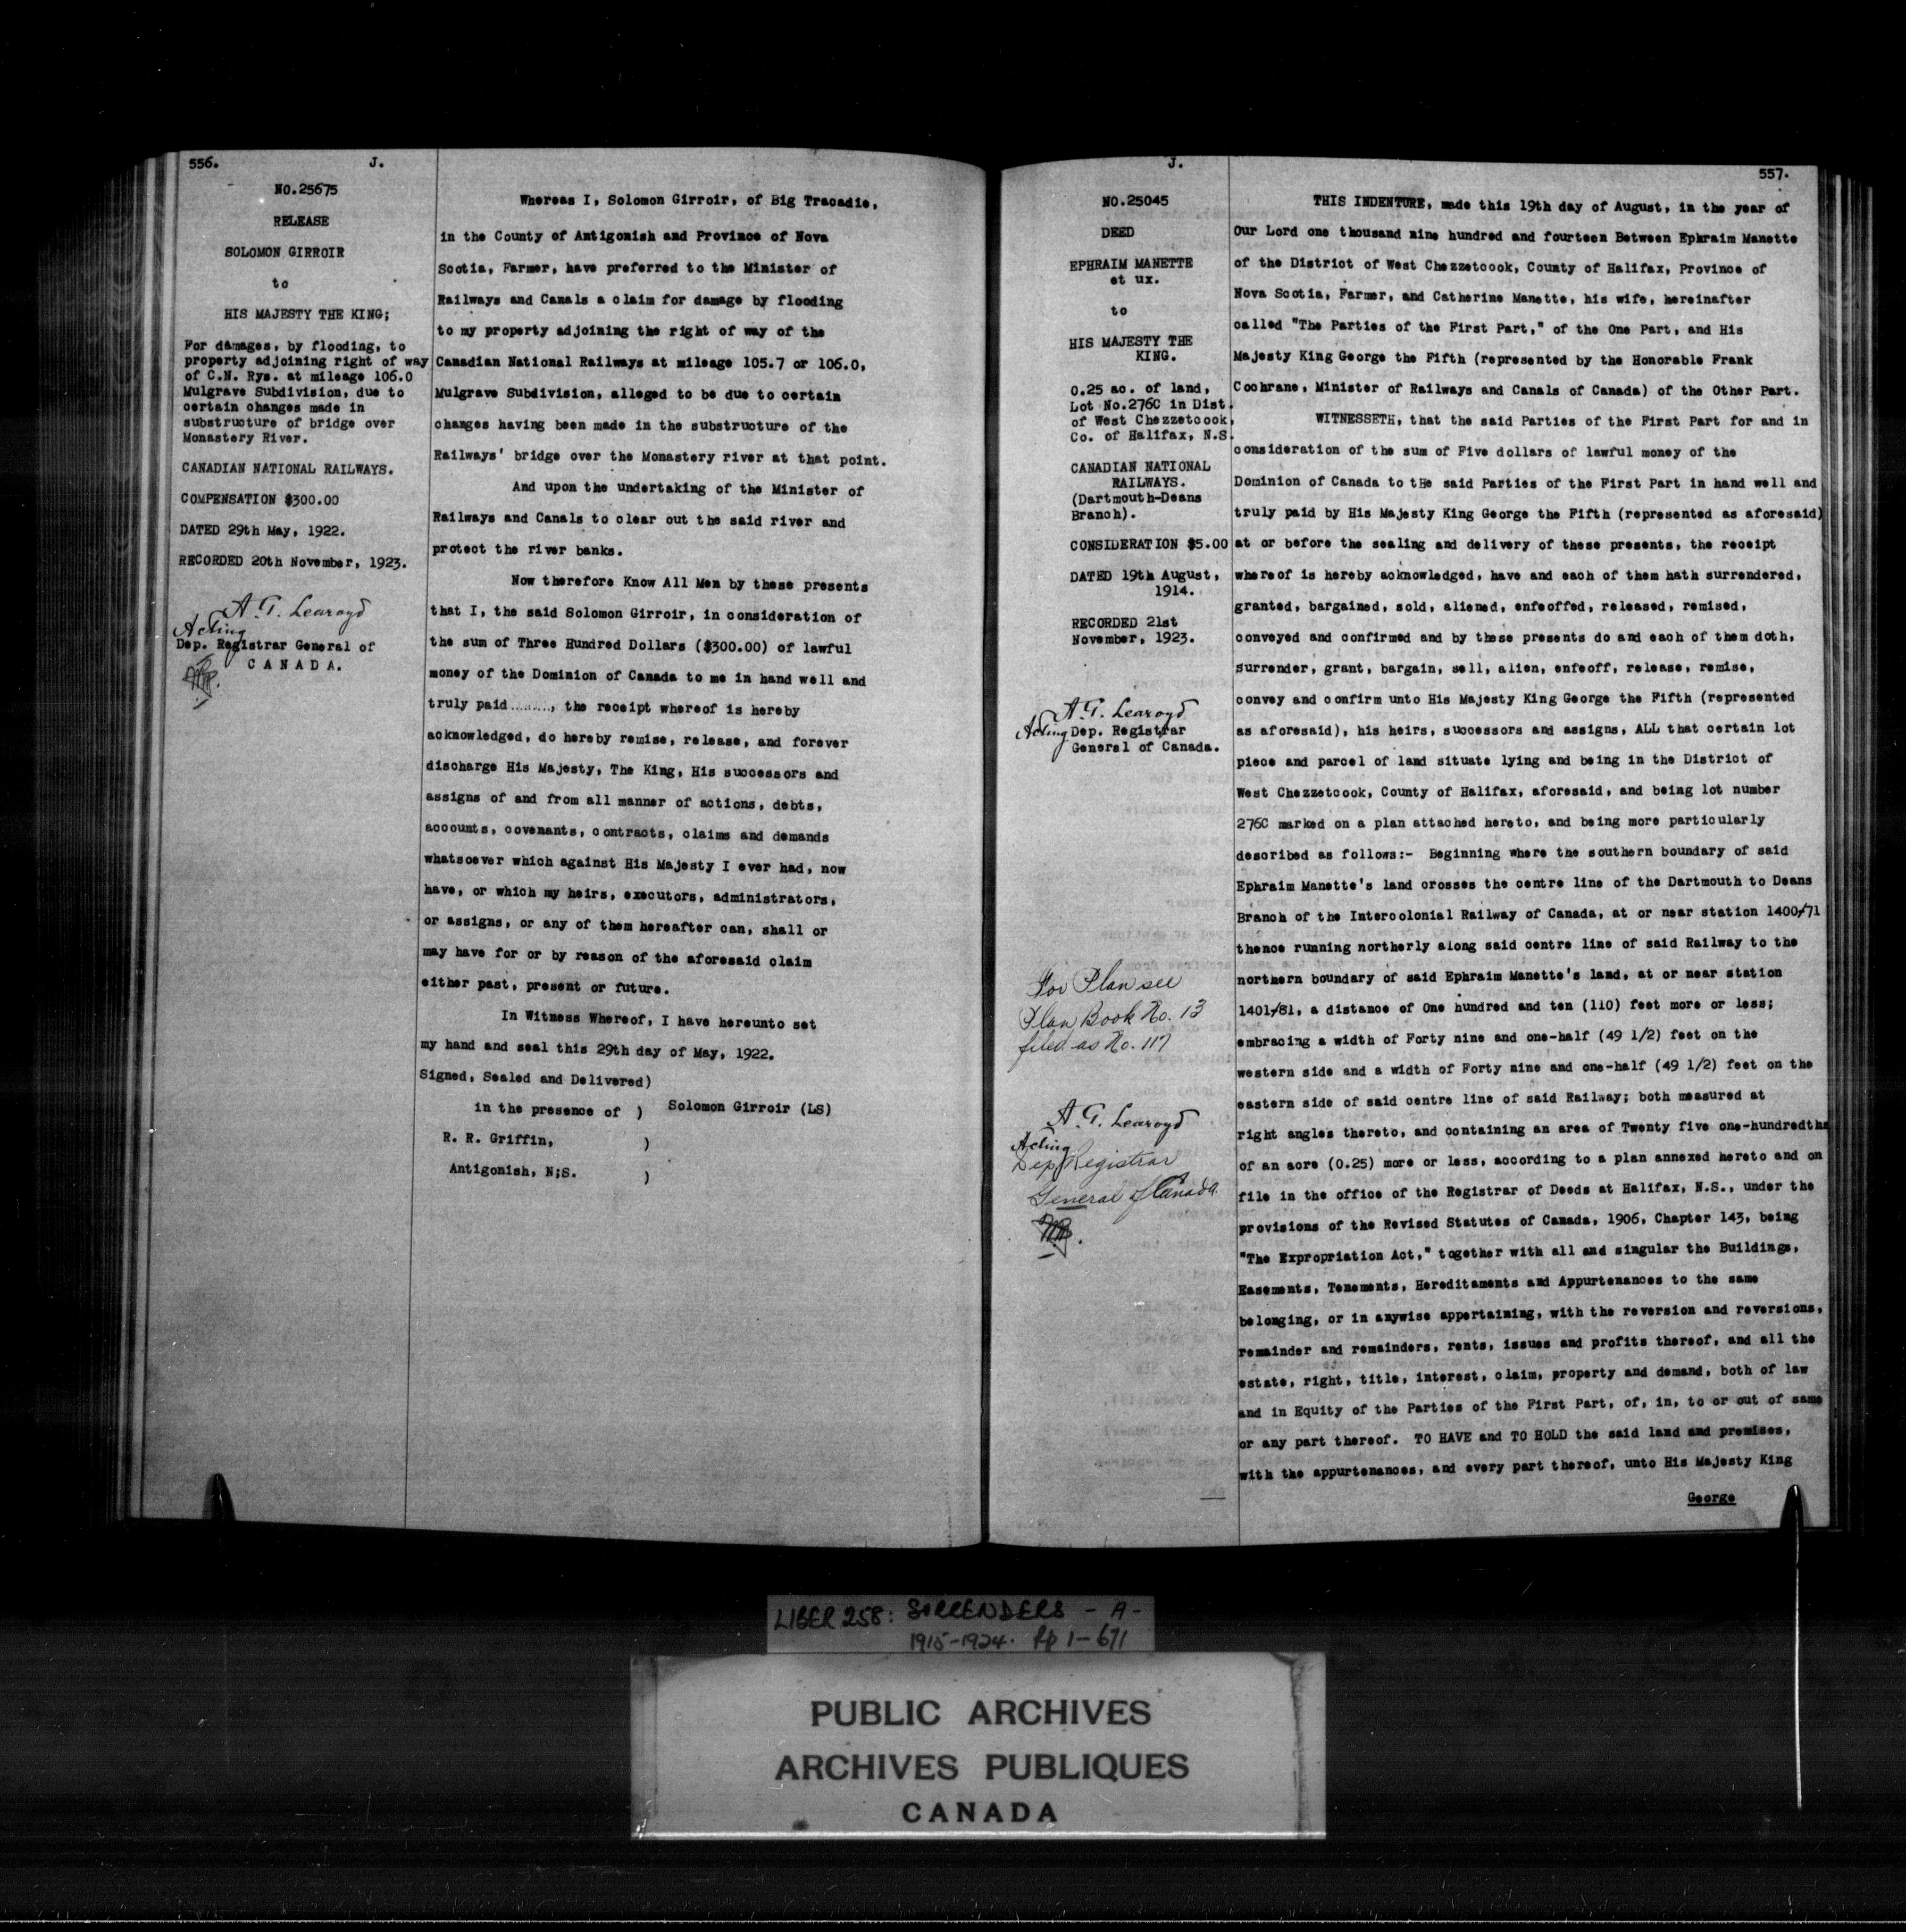 556.
J.
NO.25675
RELEASE
SOLOMON GIRROIR
to
HIS MAJESTY THE KING;
For damages, by flooding, to
property adjoining right of way
of C.N. Rys. at mileage 106.0
Mulgrave Subdivision, due to
certain changes made in
substructure of bridge over
Monastery River.
CANADIAN NATIONAL RAILWAYS.
COMPENSATION $300.00
DATED 29th May, 1922.
RECORDED 20th November, 1923.
A. G. Learoyd
Acting
Dep. Registrar General of
CANADA.
Whereas I, Solomon Girroir, of Big Tracadie,
in the County of Antigonish and Province of Nova
Scotia, Farmer, have preferred to the Minister of
Railways and Canals a claim for damage by flooding
to my property adjoining the right of way of the
Canadian National Railways at mileage 105.7 or 106.0,
Mulgrave Subdivision, alleged to be due to certain
changes having been made in the substructure of the
Railways' bridge over the Monastery river at that point.
And upon the undertaking of the Minister of
Railways and Canals to clear out the said river and
protect the river banks.
Now therefore Know All Men by these presents
that I, the said Solomon Girroir, in consideration of
the sum of Three Hundred Dollars ($300.00) of lawful
money of the Dominion of Canada to me in hand well and
truly paid ........, the receipt whereof is hereby
acknowledged, do hereby remise, release, and forever
discharge His Majesty, The King, His successors and
assigns of and from all manner of actions, debts,
accounts, covenants, contracts, claims and demands
whatsoever which against His Majesty I ever had, now
have, or which my heirs, executors, administrators,
or assigns, or any of them hereafter can, shall or
may have for or by reason of the aforesaid claim
either past, present or future.
In Witness Whereof, I have hereunto set
my hand and seal this 29th day of May, 1922.
Signed, Sealed and Delivered)
in the presence of ) Solomon Girroir (LS)
R. R. Griffin, )
Antigonish, N;S. )
J.
557.
NO.25045
DEED
EPHRAIM MANETTE
et ux.
to
HIS MAJESTY THE
KING.
0.25 ac. of land,
Lot No.276C in Dist.
of West Chezzetcook,
Co. of Halifax, N.S.
CANADIAN NATIONAL
RAILWAYS.
(Dartmouth-Deans
Branch).
CONSIDERATION $5.00
DATED 19th August,
1914.
RECORDED 21st
November, 1923.
A. G. Learoyd
Acting Dep. Registrar
General of Canada.
For Plan see
Plan Book No. 13
filed as No. 117
A. G. Learoyd
Acting
Dep Registrar
General of Canada.
THIS INDENTURE, made this 19th day of August, in the year of
Our Lord one thousand nine hundred and fourteen Between Ephraim Manette
of the District of West Chezzetcook, County of Halifax, Province of
Nova Scotia, Farmer, and Catherine Manette, his wife, hereinafter
called "The Parties of the First Part," of the One Part, and His
Majesty King George the Fifth (represented by the Honorable Frank
Cochrane, Minister of Railways and Canals of Canada) of the Other Part.
WITNESSETH, that the said Parties of the First Part for and in
consideration of the sum of Five dollars of lawful money of the
Dominion of Canada to tHe said Parties of the First Part in hand well and
truly paid by His Majesty King George the Fifth (represented as aforesaid)
at or before the sealing and delivery of these presents, the receipt
whereof is hereby acknowledged, have and each of them hath surrendered,
granted, bargained, sold, aliened, enfeoffed, released, remised,
conveyed and confirmed and by these presents do and each of them doth,
surrender, grant, bargain, sell, alien, enfeoff, release, remise,
convey and confirm unto His Majesty King George the Fifth (represented
as aforesaid), his heirs, successors and assigns, ALL that certain lot
piece and parcel of land situate lying and being in the District of
West Chezzetcook, County of Halifax, aforesaid, and being lot number
276C marked on a plan attached hereto, and being more particularly
described as follows:- Beginning where the southern boundary of said
Ephraim Manette's land crosses the centre line of the Dartmouth to Deans
Branch of the Intercolonial Railway of Canada, at or near station 1400/71
thence running northerly along said centre line of said Railway to the
northern boundary of said Ephraim Manette's land, at or near station
1401/81, a distance of One hundred and ten (110) feet more or less;
embracing a width of Forty nine and one-half (49 1/2) feet on the
western side and a width of Forty nine and one-half (49 1/2) feet on the
eastern side of said centre line of said Railway; both measured at
right angles thereto, and containing an area of Twenty five one-hundredths
of an acre (0.25) more or less, according to a plan annexed hereto and on
file in the office of the Registrar of Deeds at Halifax, N.S., under the
provisions of the Revised Statutes of Canada, 1906, Chapter 143, being
"The Expropriation Act," together with all and singular the Buildings,
Easements, Tenements, Hereditaments and Appurtenances to the same
belonging, or in anywise appertaining, with the reversion and reversions,
remainder and remainders, rents, issues and profits thereof, and all the
estate, right, title, interest, claim, property and demand, both of law
and in Equity of the Parties of the First Part, of, in, to or out of same
or any part thereof. TO HAVE and TO HOLD the said land and premises,
with the appurtenances, and every part thereof, unto His Majesty King
George
LIBER 258: SURRENDERS - A -
1915-1924. Pp 1-671
PUBLIC ARCHIVES
ARCHIVES PUBLIQUES
CANADA